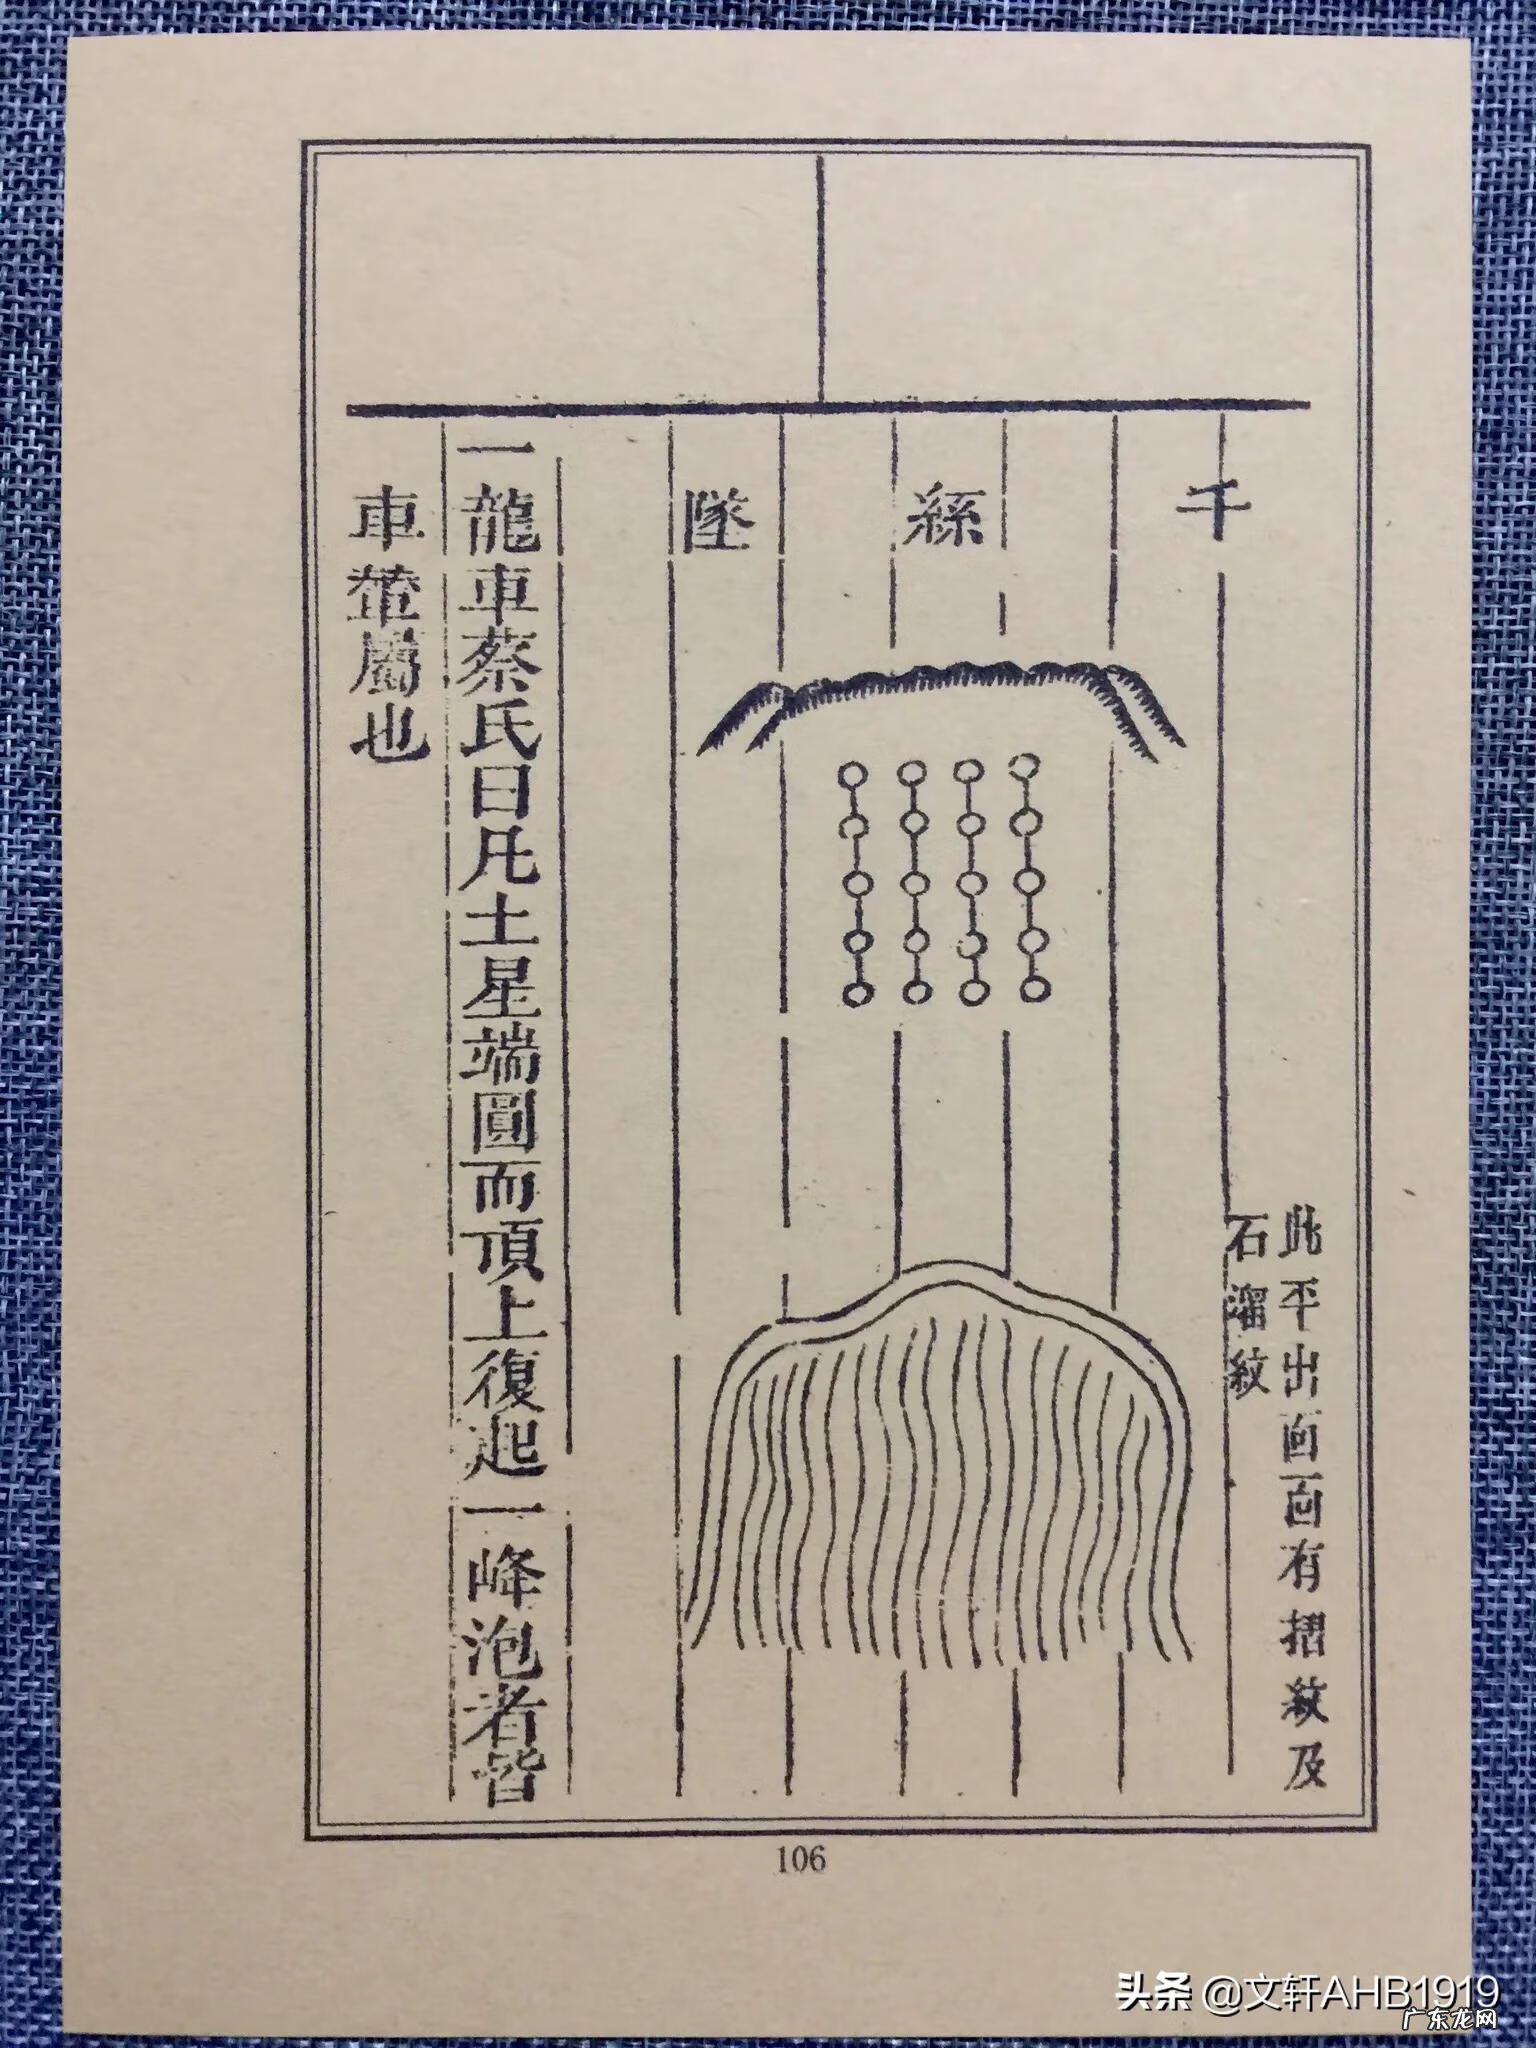 千絲墜
此平出面面有摺紋及
石溜紋
一龍車蔡氏曰凡土星端圓而頂上復起一峰泡者皆
車輦屬也
106
头条 @文轩AHB1919
广东龙网